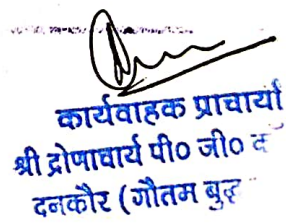 कार्यवाहक प्राचार्या
श्री द्रोणाचार्य पी० जी०
दनकौर (गौतम बुद्ध